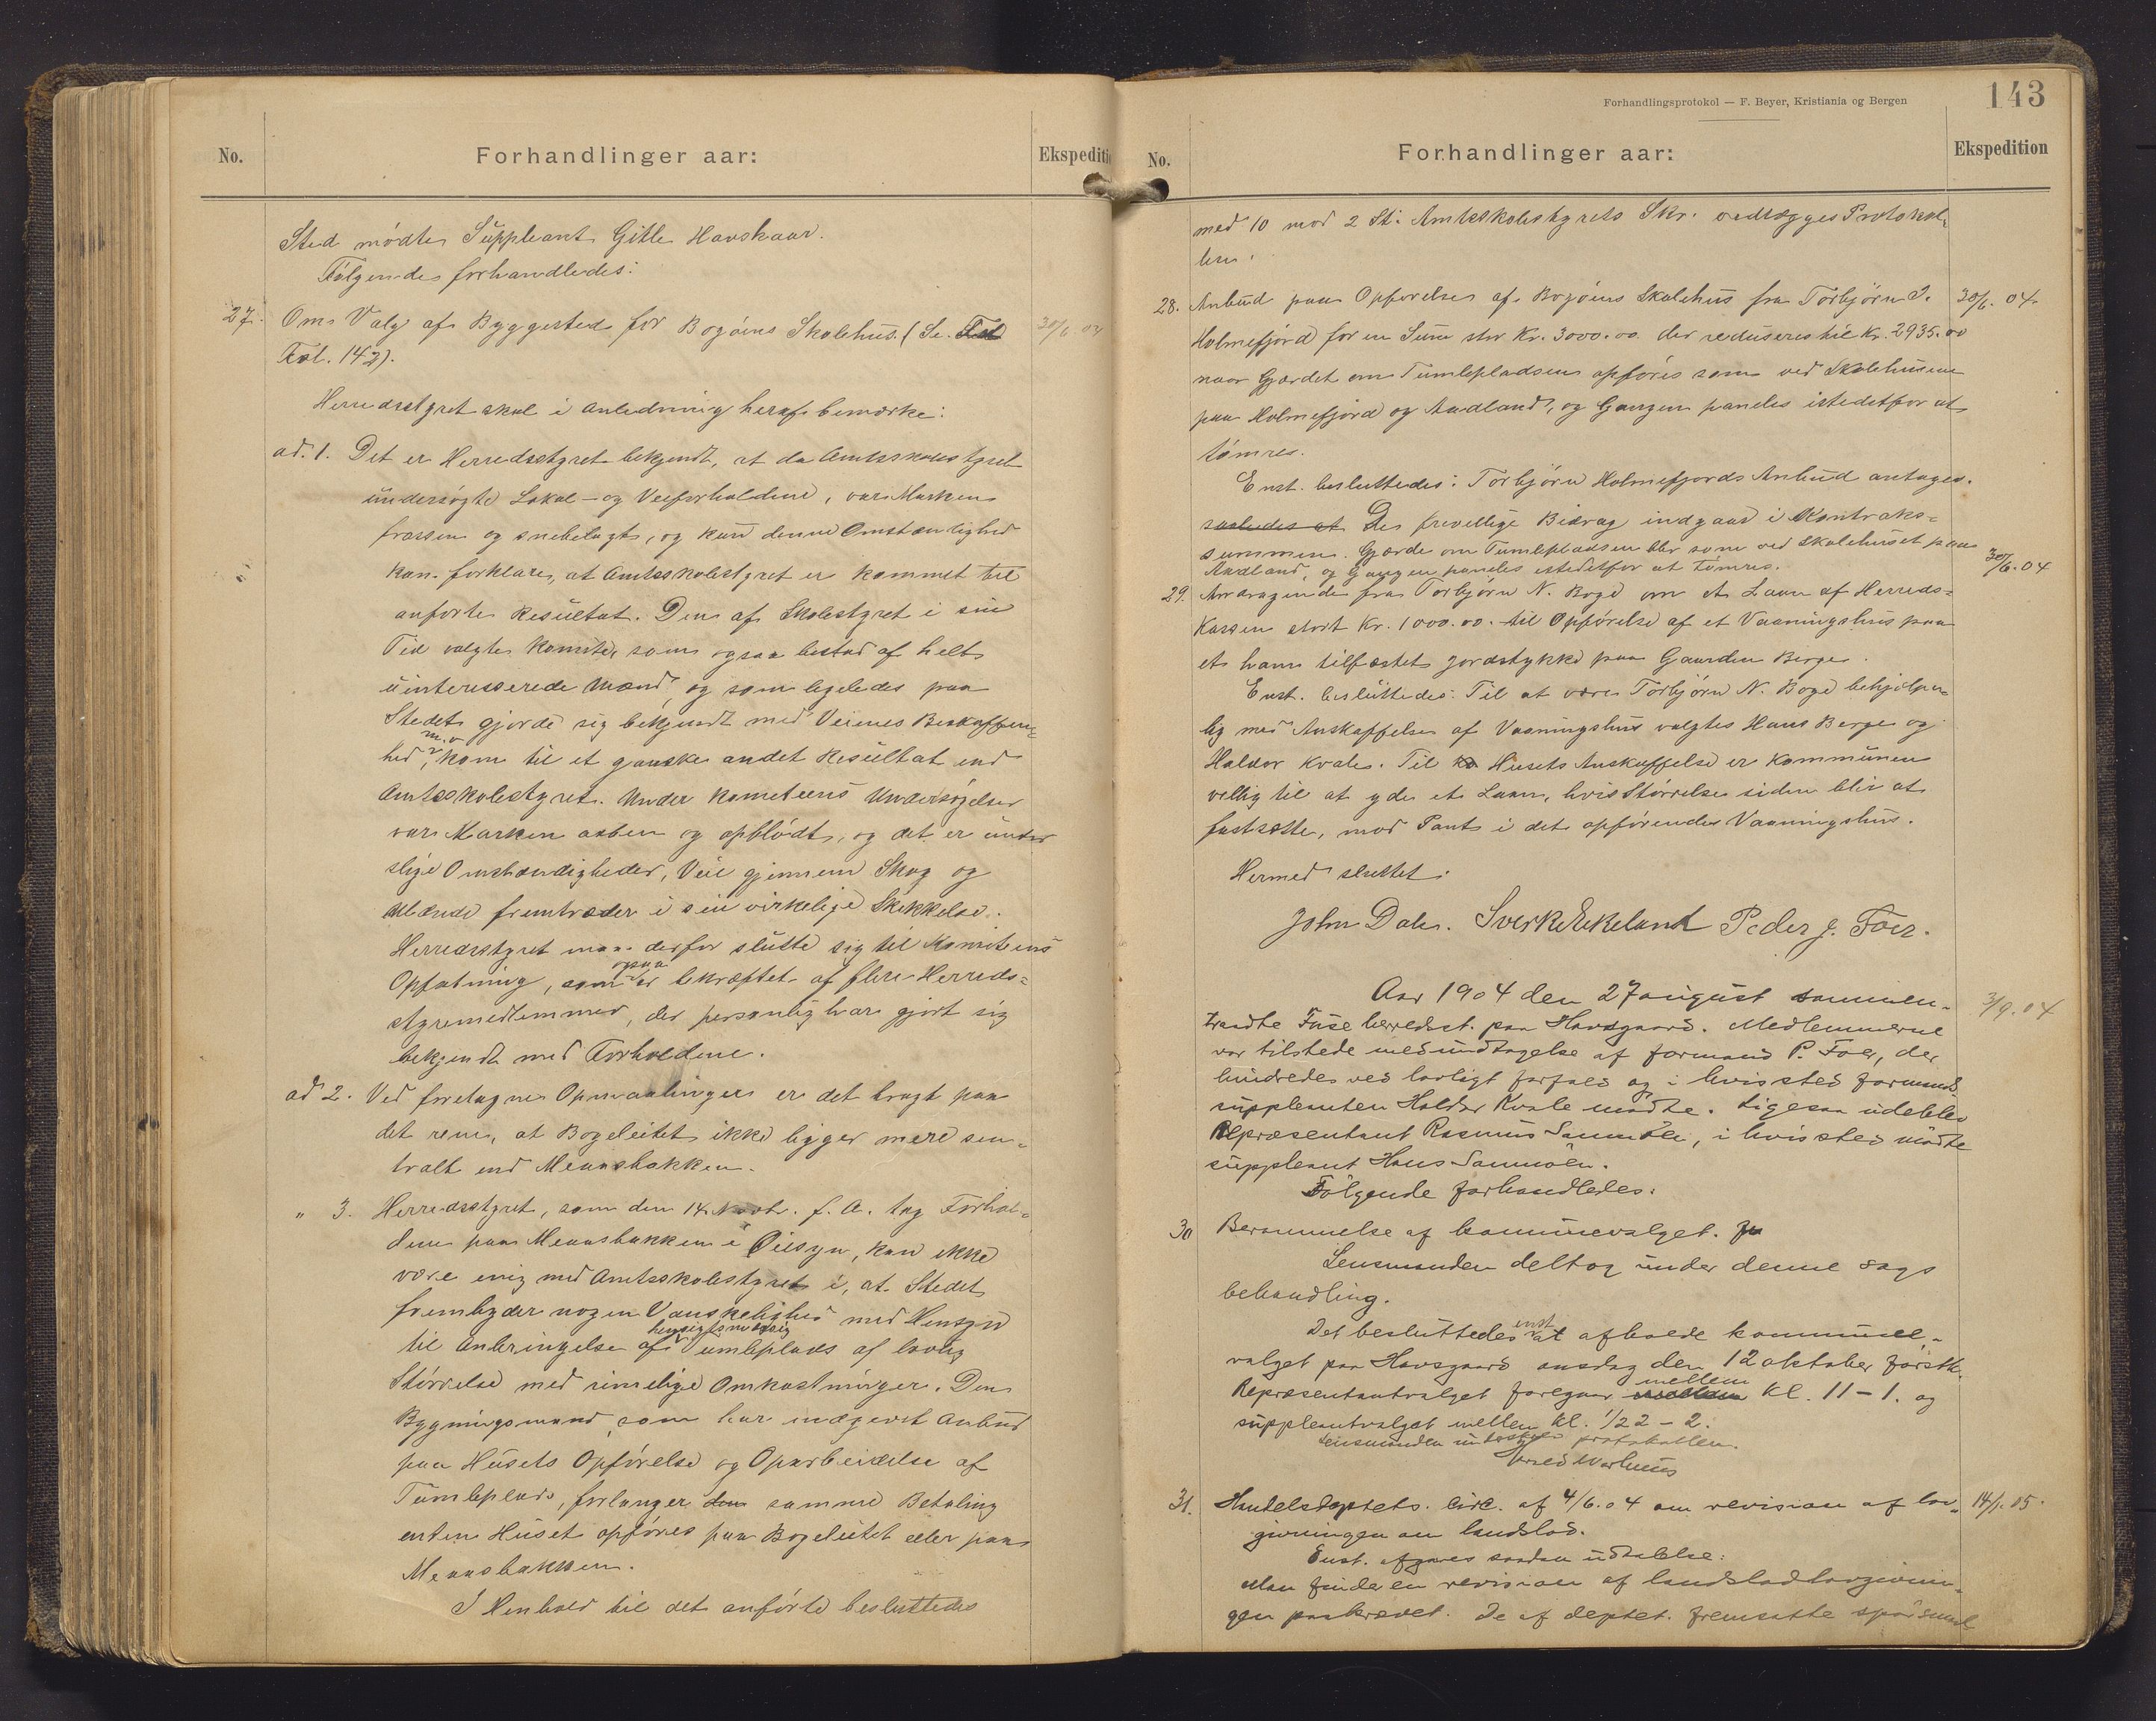 No.
Forhandlinger aar:
Ekspediti
Sted mødte Suppleant Gitle Hauskaar.
Følgende forhandledes:
27. Om Valg af Byggested for Bogøens Skolehus. (Se
Fol. 142).
30/6 04
Herredsstyret skal i Anledning heraf bemærke:
ad. 1. Det er Herredsstyret bekjendt, at da Amtsskolestyret
undersøgte Lokal- og Veiforholdene, var Marken
frossen og snebelagt, og kun denne Omstændighed
kan forklare, at Amtsskolestyret er kommet til
anførte Resultat. Den af Skolestyret i sin
Tid valgte Komite, som ogsaa bestod af helt
uinteresserede Mænd og som ligeledes paa
Stedet gjorde sig bekjendt med Veienes Beskaffen-
hed m.v., kom til et ganske andet Resultat end
Amtsskolestyret. Under Komiteens Undersøgelser
var Marken aaben og opblødt, og det er under
slige Omstændigheder, Veie gjennem Skog og
Udlænde fremtræder i sin virkelige Skikkelse.
Herredsstyret maa derfor slutte sig til Komiteens
Opfatning, som ogsaa er bekræftet af flere Herreds-
styremedlemmer, der personlig har gjort sig
bekjendt med Forholdene.
ad 2. Ved foretagne Opmaalinger er det bragt paa
det rene, at Bogeleitet ikke ligger mere sen-
tralt end Meansbakken.
" 3. Herredsstyret, som den 14. Novbr. f. A. tog Forhol-
dene paa Meansbakken i Øiesyn, kan ikke
være enig med Amtsskolestyret i, at Stedet
frembyder nogen Vanskelighed med Hensyn
til Anbringelse af hensigtsmæssig Tumleplads af lovlig
Størrelse med rimelige Omkostninger. Den
Bygningsmand, som har indgivet Anbud
paa Husets Opførelse og Oparbeidelse af
Tumleplads, forlanger den samme Betaling
enten Huset opføres paa Bogeleitet eller paa
Meansbakken.
I Henhold til det anførte besluttedes
Forhandlingsprotokol — F. Beyer, Kristiania og Bergen
143
No.
Forhandlinger aar:
Ekspedition
med 10 mod 2 St: Amtsskolestyrets Skr. vedlægges Protokol-
len.
28. Anbud paa Opførelse af Bogøens Skolehus fra Torbjørn J.
30/6. 04
Holmefjord for en Sum stor Kr. 3000.00 der reduseres til Kr. 2935.00
naar Gjærdet om Tumlepladsen opføres som ved Skolehusene
paa Holmefjord og Aadland, og Gangen paneles istedetfor at
tømres.
Enst. besluttedes: Torbjørn Holmefjords Anbud antages.
saaledes at De frivillige Bidrag indgaar i Kontrakt-
summen. Gjærde om Tumlepladsen blir som ved Skolehuset paa
Aadland, og Gangen paneles istedetfor at tømres.
30/6. 04
29. Andragende fra Torbjørn N. Boge om et Laan af Herreds-
kassen stort Kr. 1000.00 til Opførelse af et Vaaningshus paa
et ham tilfæstet Jordstykke paa Gaarden Berge.
Enst. besluttedes: Til at være Torbjørn N. Boge behjelpe-
lig med Anskaffelse af Vaaningshus valgtes Hans Berge og
Haldor Kvale. Til Husets Anskaffelse er Kommunen
villig til at yde et Laan, hvis Størrelse siden blir at
fastsætte, mod Pant i det opførendes Vaaningshus.
Hermed sluttet.
John Dale. Sverke Eikeland Peder J. Føer.
Aar 1904 den 27 august sammen-
3/9. 04
traadte Fuse herredsst. paa Havsgaard. Medlemmerne
var tilstede med undtagelse af formand P. Føer, der
hindredes ved lovligt forfald og i hvis sted formands-
suppleanten Haldor Kvale mødte. Ligesaa udeblev
Repræsentant Rasmus Samnøen, i hvis sted mødte
suppleant Hans Samnøen.
Følgende forhandledes:
30 Berammelse af kommunevalget.
Lensmanden deltog under denne sags
behandling.
Det besluttedes enst at afholde kommune-
valget paa Havsgaard onsdag den 12 oktober førstk.
Repræsentantvalget foregaar mellem kl. 11 - 1. og
suppleantvalget mellem kl. 1/2 2 - 2.
Lensmanden underskrev protokollen.
31. Handelsdeptets. Circ. af 4/6.04 om revision af lov-
14/1. 05.
givningen om landslod.
Enst. afgaves saadan udtalelse:
Man finder en revision af landslodlovgivnin-
gen paakrævet. De af deptet. fremsatte spørsmaal